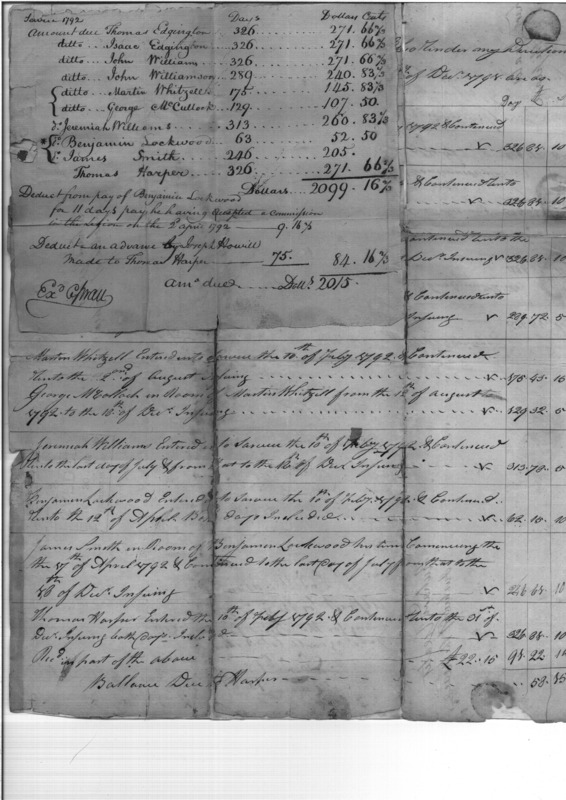 Savice 1792 Days Dollars Cents
Amount due Thomas Edgington 326 271. 66⅔
ditto Isaac Edgington 326 271. 66⅔
ditto John Williams 326 271. 66⅔
ditto John Williamson 289 240. 83⅓
ditto Martin Whitzell 175 145. 83⅓
ditto George McCullock 129 107. 50.
do Jeremiah Williams 313 260. 83⅓
Do Benjamin Lockwood 63 52. 50
Do James Smith 246 205.
Thomas Harper 326 271. 66⅔
Dollars 2099. 16⅔
Deduct from pay of Benjamin Lockwood
for 11 days pay he having accepted a Commission
in the legion on the 2d april 1792 9. 16⅔
Deduct an advance by Joseph
Made to Thomas Harper 75. 84. 16⅔
amt due Dolls 2015.
Exd
under my direction
of Decr
Day £
1792 & Continued
326 10
& Continued unto
326 10
Continued unto the
Decr Insuing 326 10
& Continued unto
Insuing 289 72 5
Martin Whitzell Entered into Sarvice the 10th of Feby 1792 & Continued
unto the 2nd of August Insuing 175 43 15
George McColloch in Room of Martin Whitzell from the 12th of august
1792 to the 16th of Decr Insuing 129 32 5
Jeremiah Williams Entered into Sarvice the 10th of Feby 1792 & Continued
unto the last day of July & from that to the of Decr Insuing 313 78 5
Benjamin Lockwood Entered into Sarvice the 10th of Feby 1792 & Continued
unto the 12th of April Both days Included 62 15 10
James Smith in Room of Benjamin Lockwood Commencing the
the 17th of April 1792 & Continued to the last day of July from that to the
16th of Decr Insuing 246 10
Thomas Harper Entered the 10th of Feby 1792 & Continued unto the 31st of
Decr Insuing both days Included 326 10
Recd in part of the above £22. 10 22
Ballance Due T Harper 58